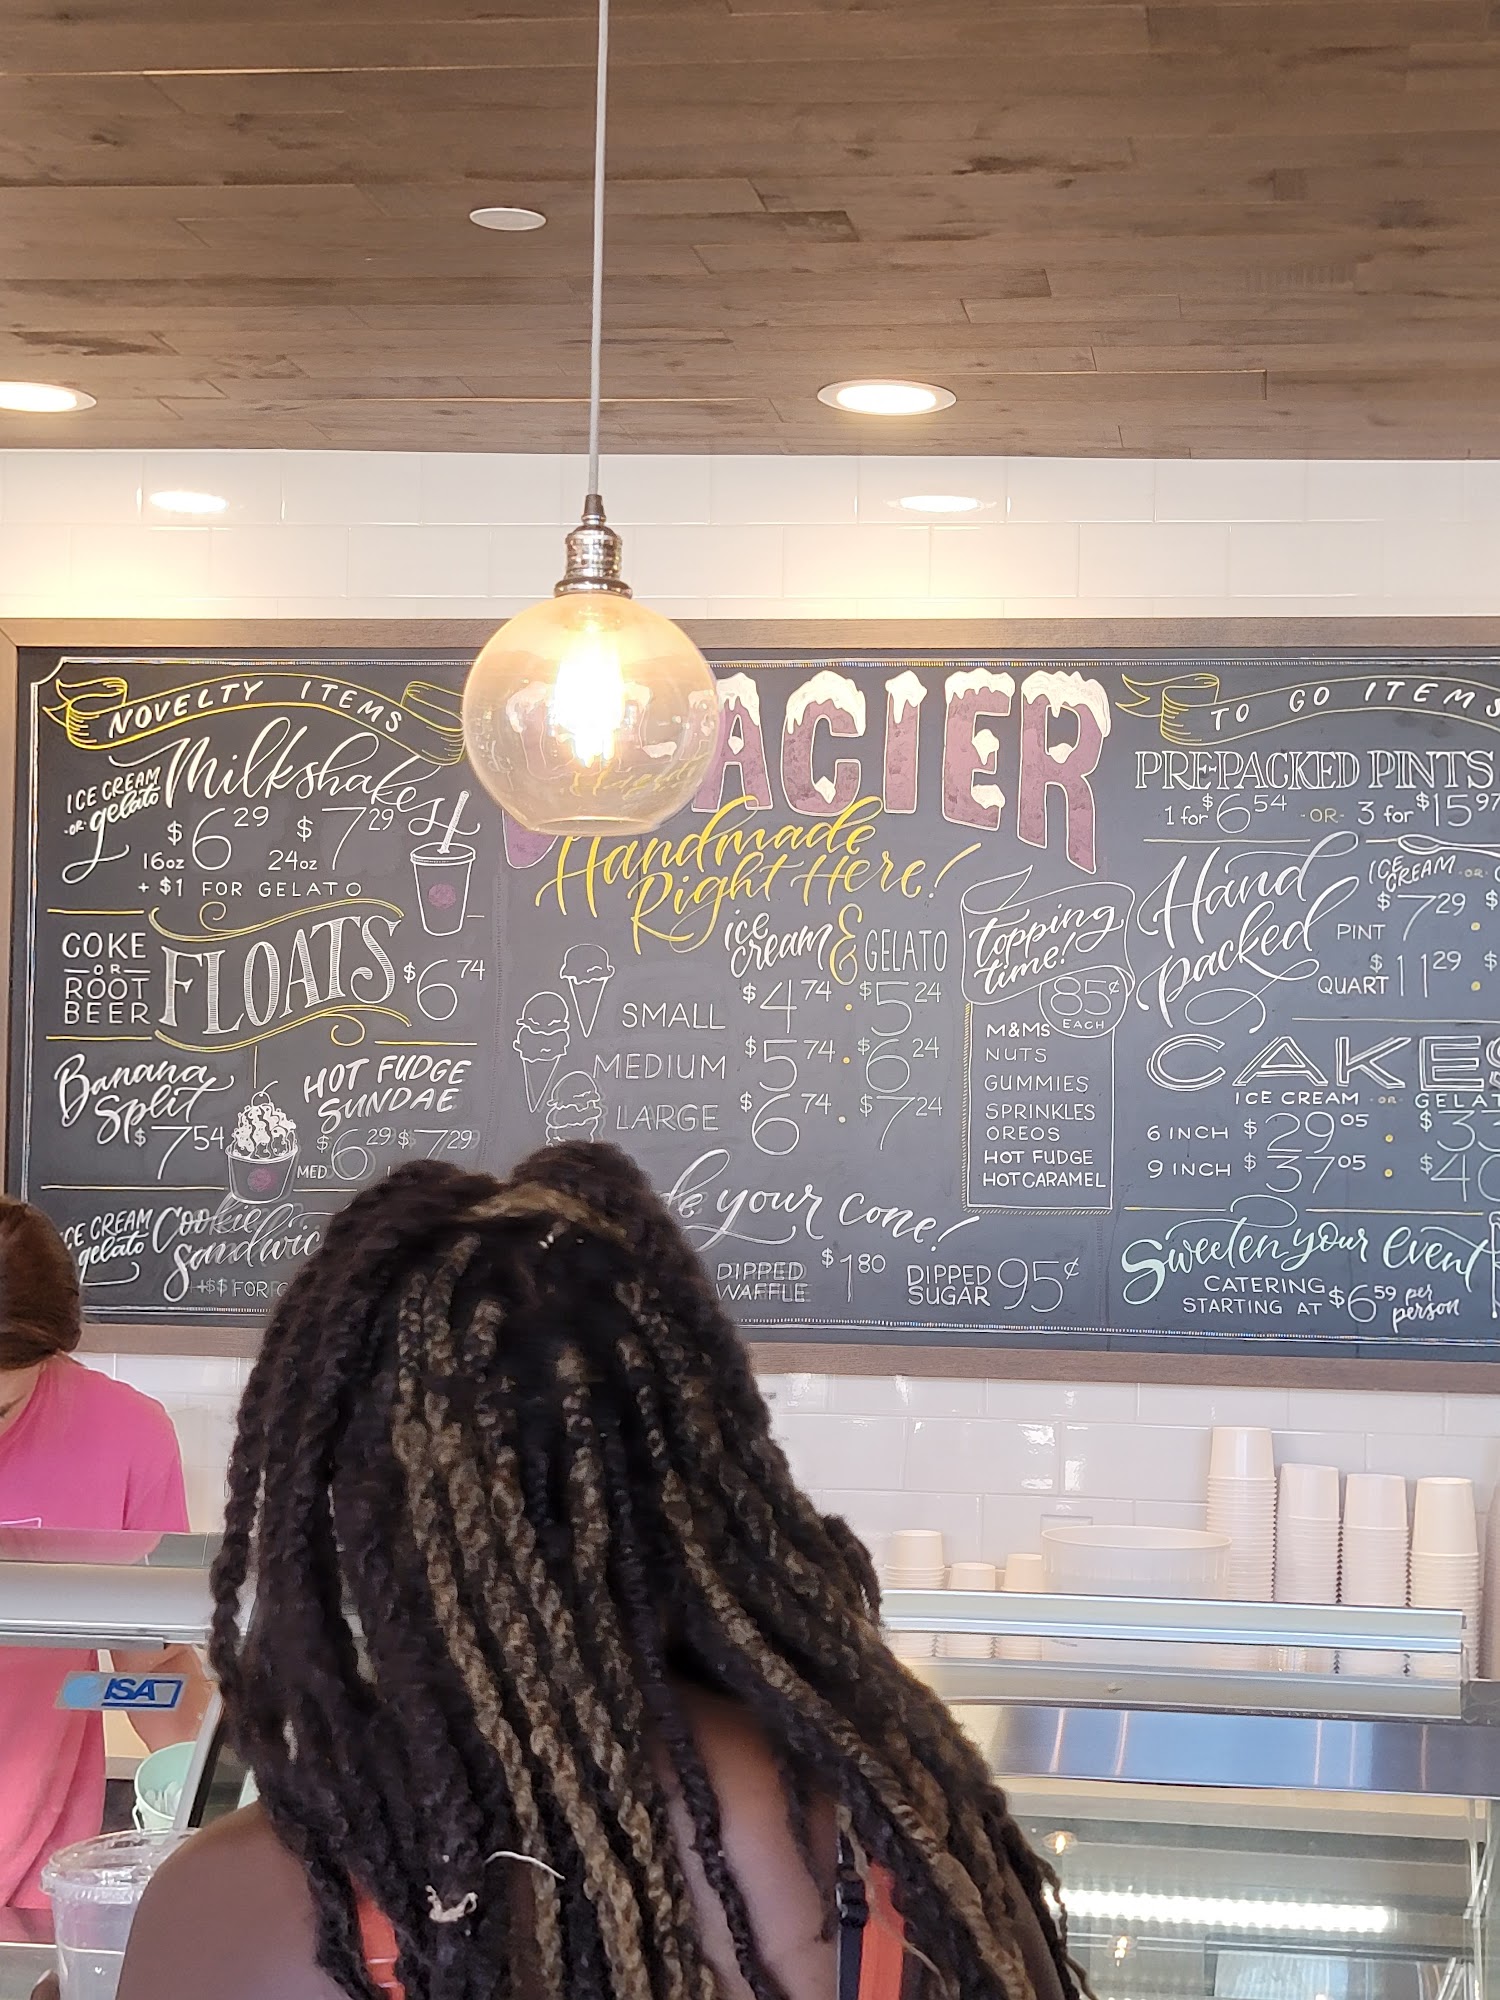 NOVELTY ITEMS
ICE CREAM -OR- gelato Milkshakes
16oz $6 29 24oz $7 29
+ $1 FOR GELATO
COKE -OR- ROOT BEER FLOATS $6 74
Banana Split $7 54
HOT FUDGE SUNDAE
MED $6 29 $7 29
ICE CREAM gelato Cookie
+$$ FOR
ACIER
Handmade
Right Here!
ice cream & GELATO
SMALL $4 74 · $5 24
MEDIUM $5 74 · $6 24
LARGE $6 74 · $7 24
your cone!
DIPPED WAFFLE $1 80 DIPPED SUGAR 95¢
topping time!
85¢ EACH
M&MS
NUTS
GUMMIES
SPRINKLES
OREOS
HOT FUDGE
HOT CARAMEL
TO GO ITEMS
PRE-PACKED PINTS
1 for $6 54 -OR- 3 for $15 97
Hand packed
ICE CREAM -OR-
PINT $7 29 · $
QUART $11 29 · $
CAKES
ICE CREAM -OR- GELAT
6 INCH $29 05 · $33
9 INCH $37 05 · $40
Sweeten your Event
CATERING
STARTING AT $6 59 per person
ISA